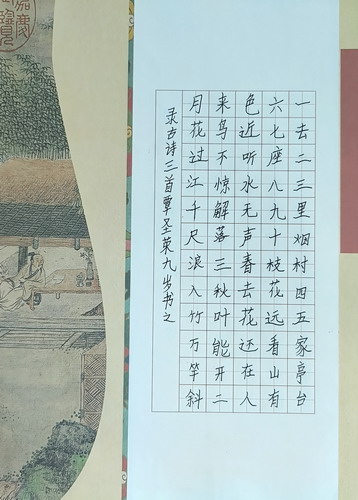 一去二三里烟村四五家亭台
六七座八九十枝花远看山有
色近听水无声春去花还在人
来鸟不惊解落三秋叶能开二
月花过江千尺浪入竹万竿斜
录古诗三首覃圣九岁书之